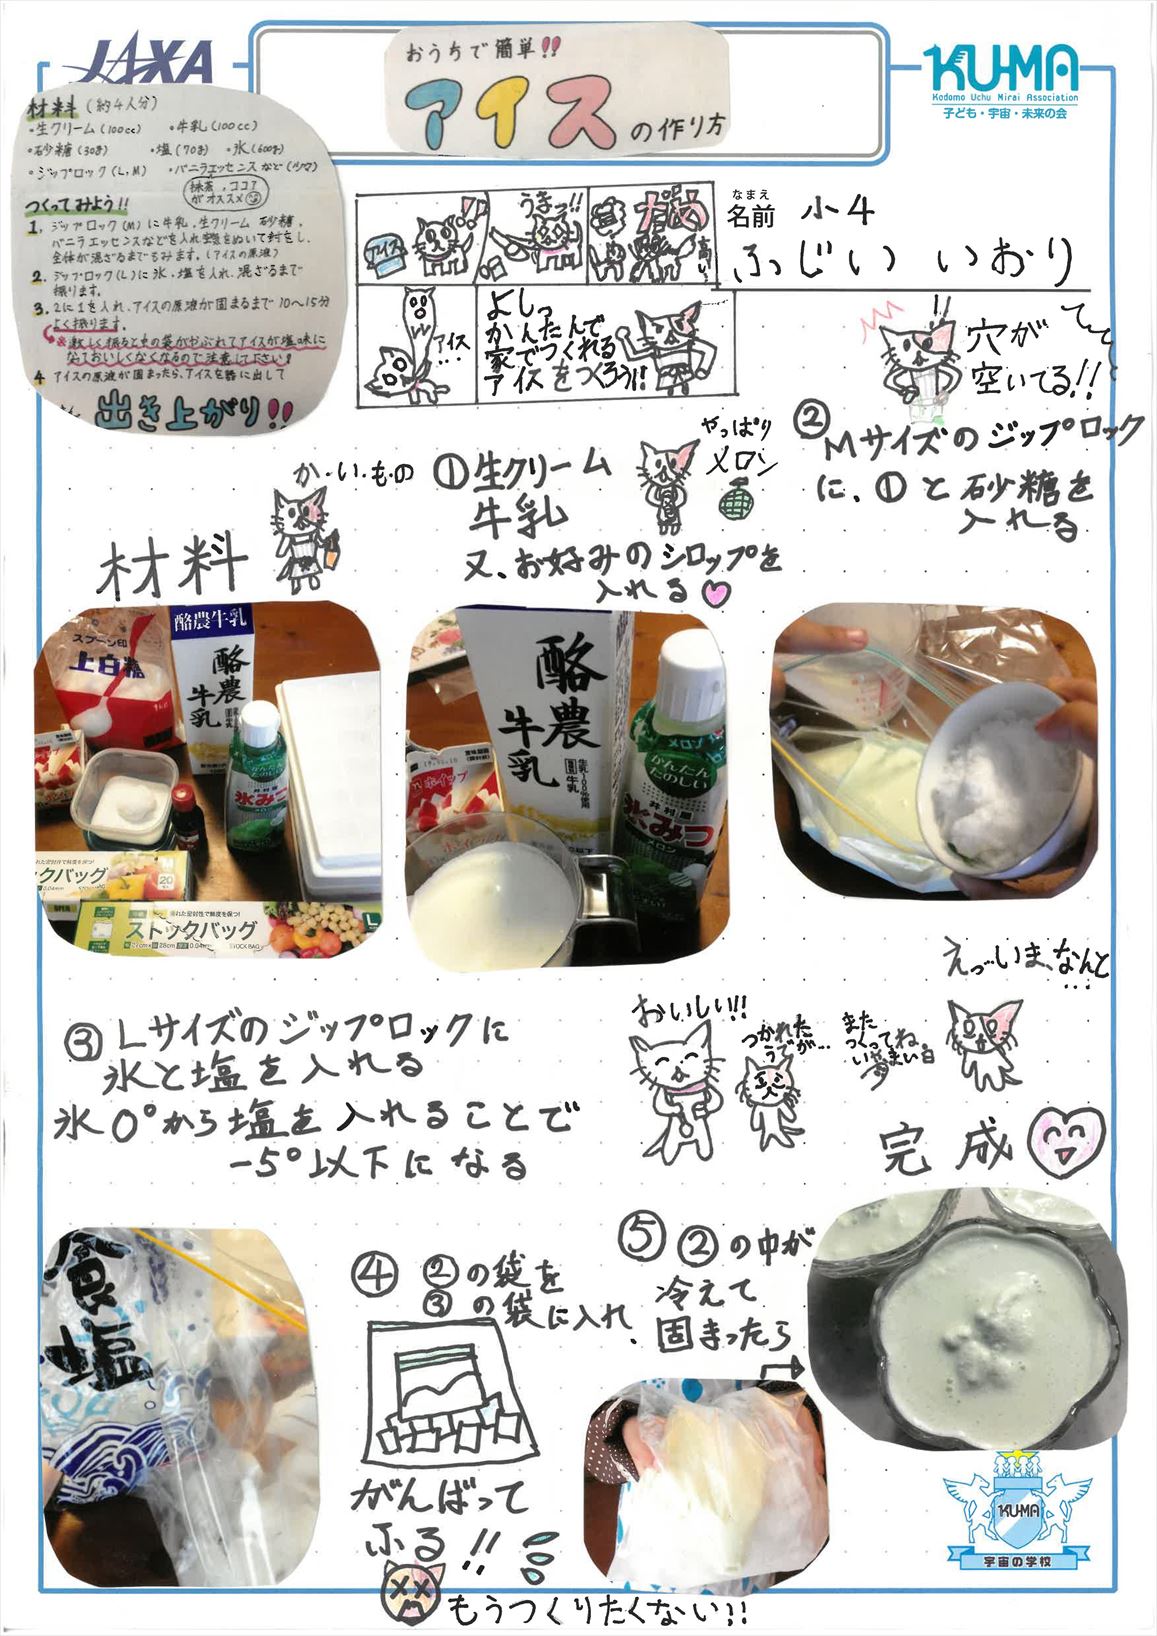 JAXA
おうちで簡単!!
アイスの作り方
KU-MA
Kodomo Uchu Mirai Association
子ども・宇宙・未来の会
材料(約4人分)
・生クリーム(100cc) ・牛乳(100cc)
・砂糖(30g) ・塩(70g) ・氷(600g)
・ジップロック(L,M) ・バニラエッセンスなど(少々)
抹茶、ココア
がオススメ
つくってみよう!!
1. ジップロック(M)に牛乳、生クリーム 砂糖、
バニラエッセンスなどを入れ空気をぬいて封をし、
全体が混ざるまでもみます。(アイスの原液)
2. ジップロック(L)に氷、塩を入れ、混ざるまで
振ります。
3. 2に1を入れ、アイスの原液が固まるまで10〜15分
よく振ります。
※激しく振ると中の袋がやぶれてアイスが塩味に
なっておいしくなくなるので注意して下さい!
4 アイスの原液が固まったら、アイスを器に出して
出き上がり!!
アイス
うまっ!!
だめ
高い
アイス…
よしっ
かんたんで
家でつくれる
アイスをつくろう!!
なまえ
名前 小4
ふじい いおり
!!
穴が
空いてる!!
か・い・もの
材料
①生クリーム
牛乳
又、お好みのシロップを
入れる
やっぱり
メロン
②Mサイズのジップロック
に、①と砂糖を
入れる
スプーン印
上白糖
酪農牛乳
酪農
牛乳
かんたん
たのしい
氷みつ
クバッグ
20
ストックバッグ
L
STOCK BAG
酪農
牛乳
ホイップ
メロン
かんたん
たのしい
井村屋
氷みつ
メロン
③Lサイズのジップロックに
氷と塩を入れる
氷0°から塩を入れることで
-5°以下になる
おいしい!!
つかれた
うでが…
また
つくってね。
えっ…いま、なんと
…
完成
食塩
④②の袋を
③の袋に入れ、
がんばって
ふる!!
もうつくりたくない!!
⑤②の中が
冷えて
固まったら
KU-MA
宇宙の学校